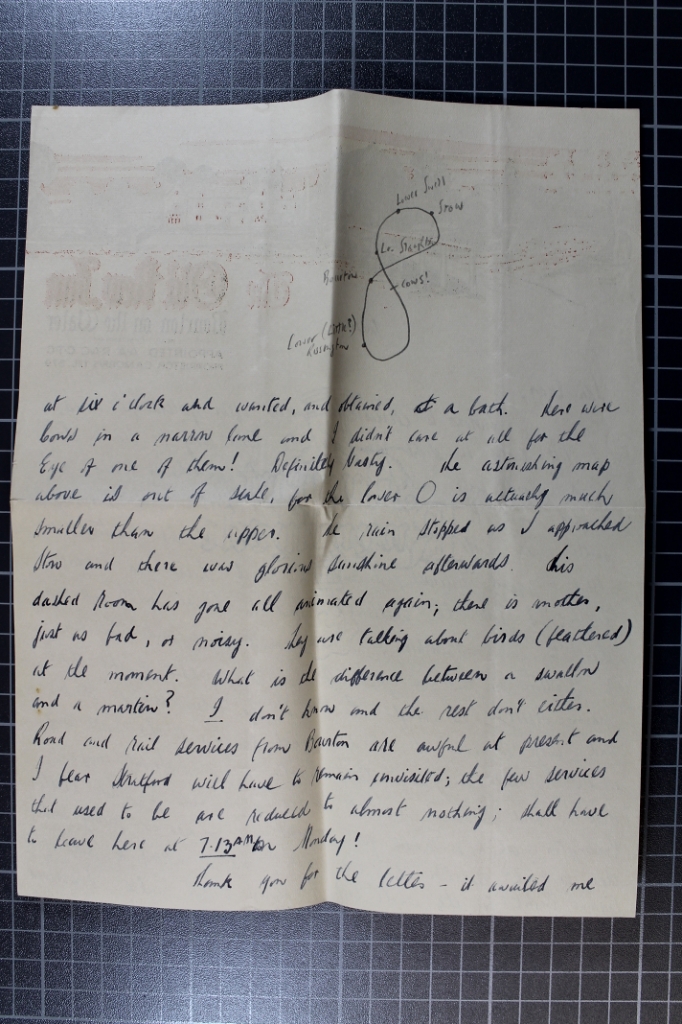 Lower Swell
Stow
Lr. Slaughter
Bourton
cows!
Lower (Little?)
Rissington
at six o'clock and wanted, and obtained, a bath. There were
cows in a narrow lane and I didn't care at all for the
Eye of one of them! Definitely Nasty. The astonishing map
above is out of scale, for the lower O is actually much
smaller than the upper. The rain stopped as I approached
Stow and there was glorious sunshine afterwards. This
dashed Room has gone all animated again; there is another,
just as bad, or noisy. They are talking about birds (feathered)
at the moment. What is the difference between a swallow
and a martin? I don't know and the rest don't either.
Road and rail services from Bourton are awful at present and
I fear Stratford will have to remain unvisited; the few services
that used to be are reduced to almost nothing; shall have
to leave here at 7.13 AM on Monday!
Thank you for the letter - it awaited me